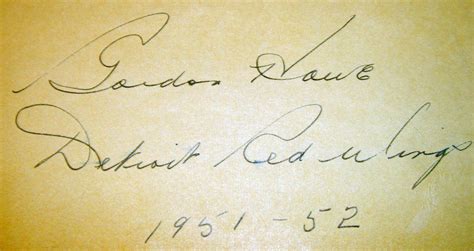 Gordon Howe
Detroit Red Wings
1951-52